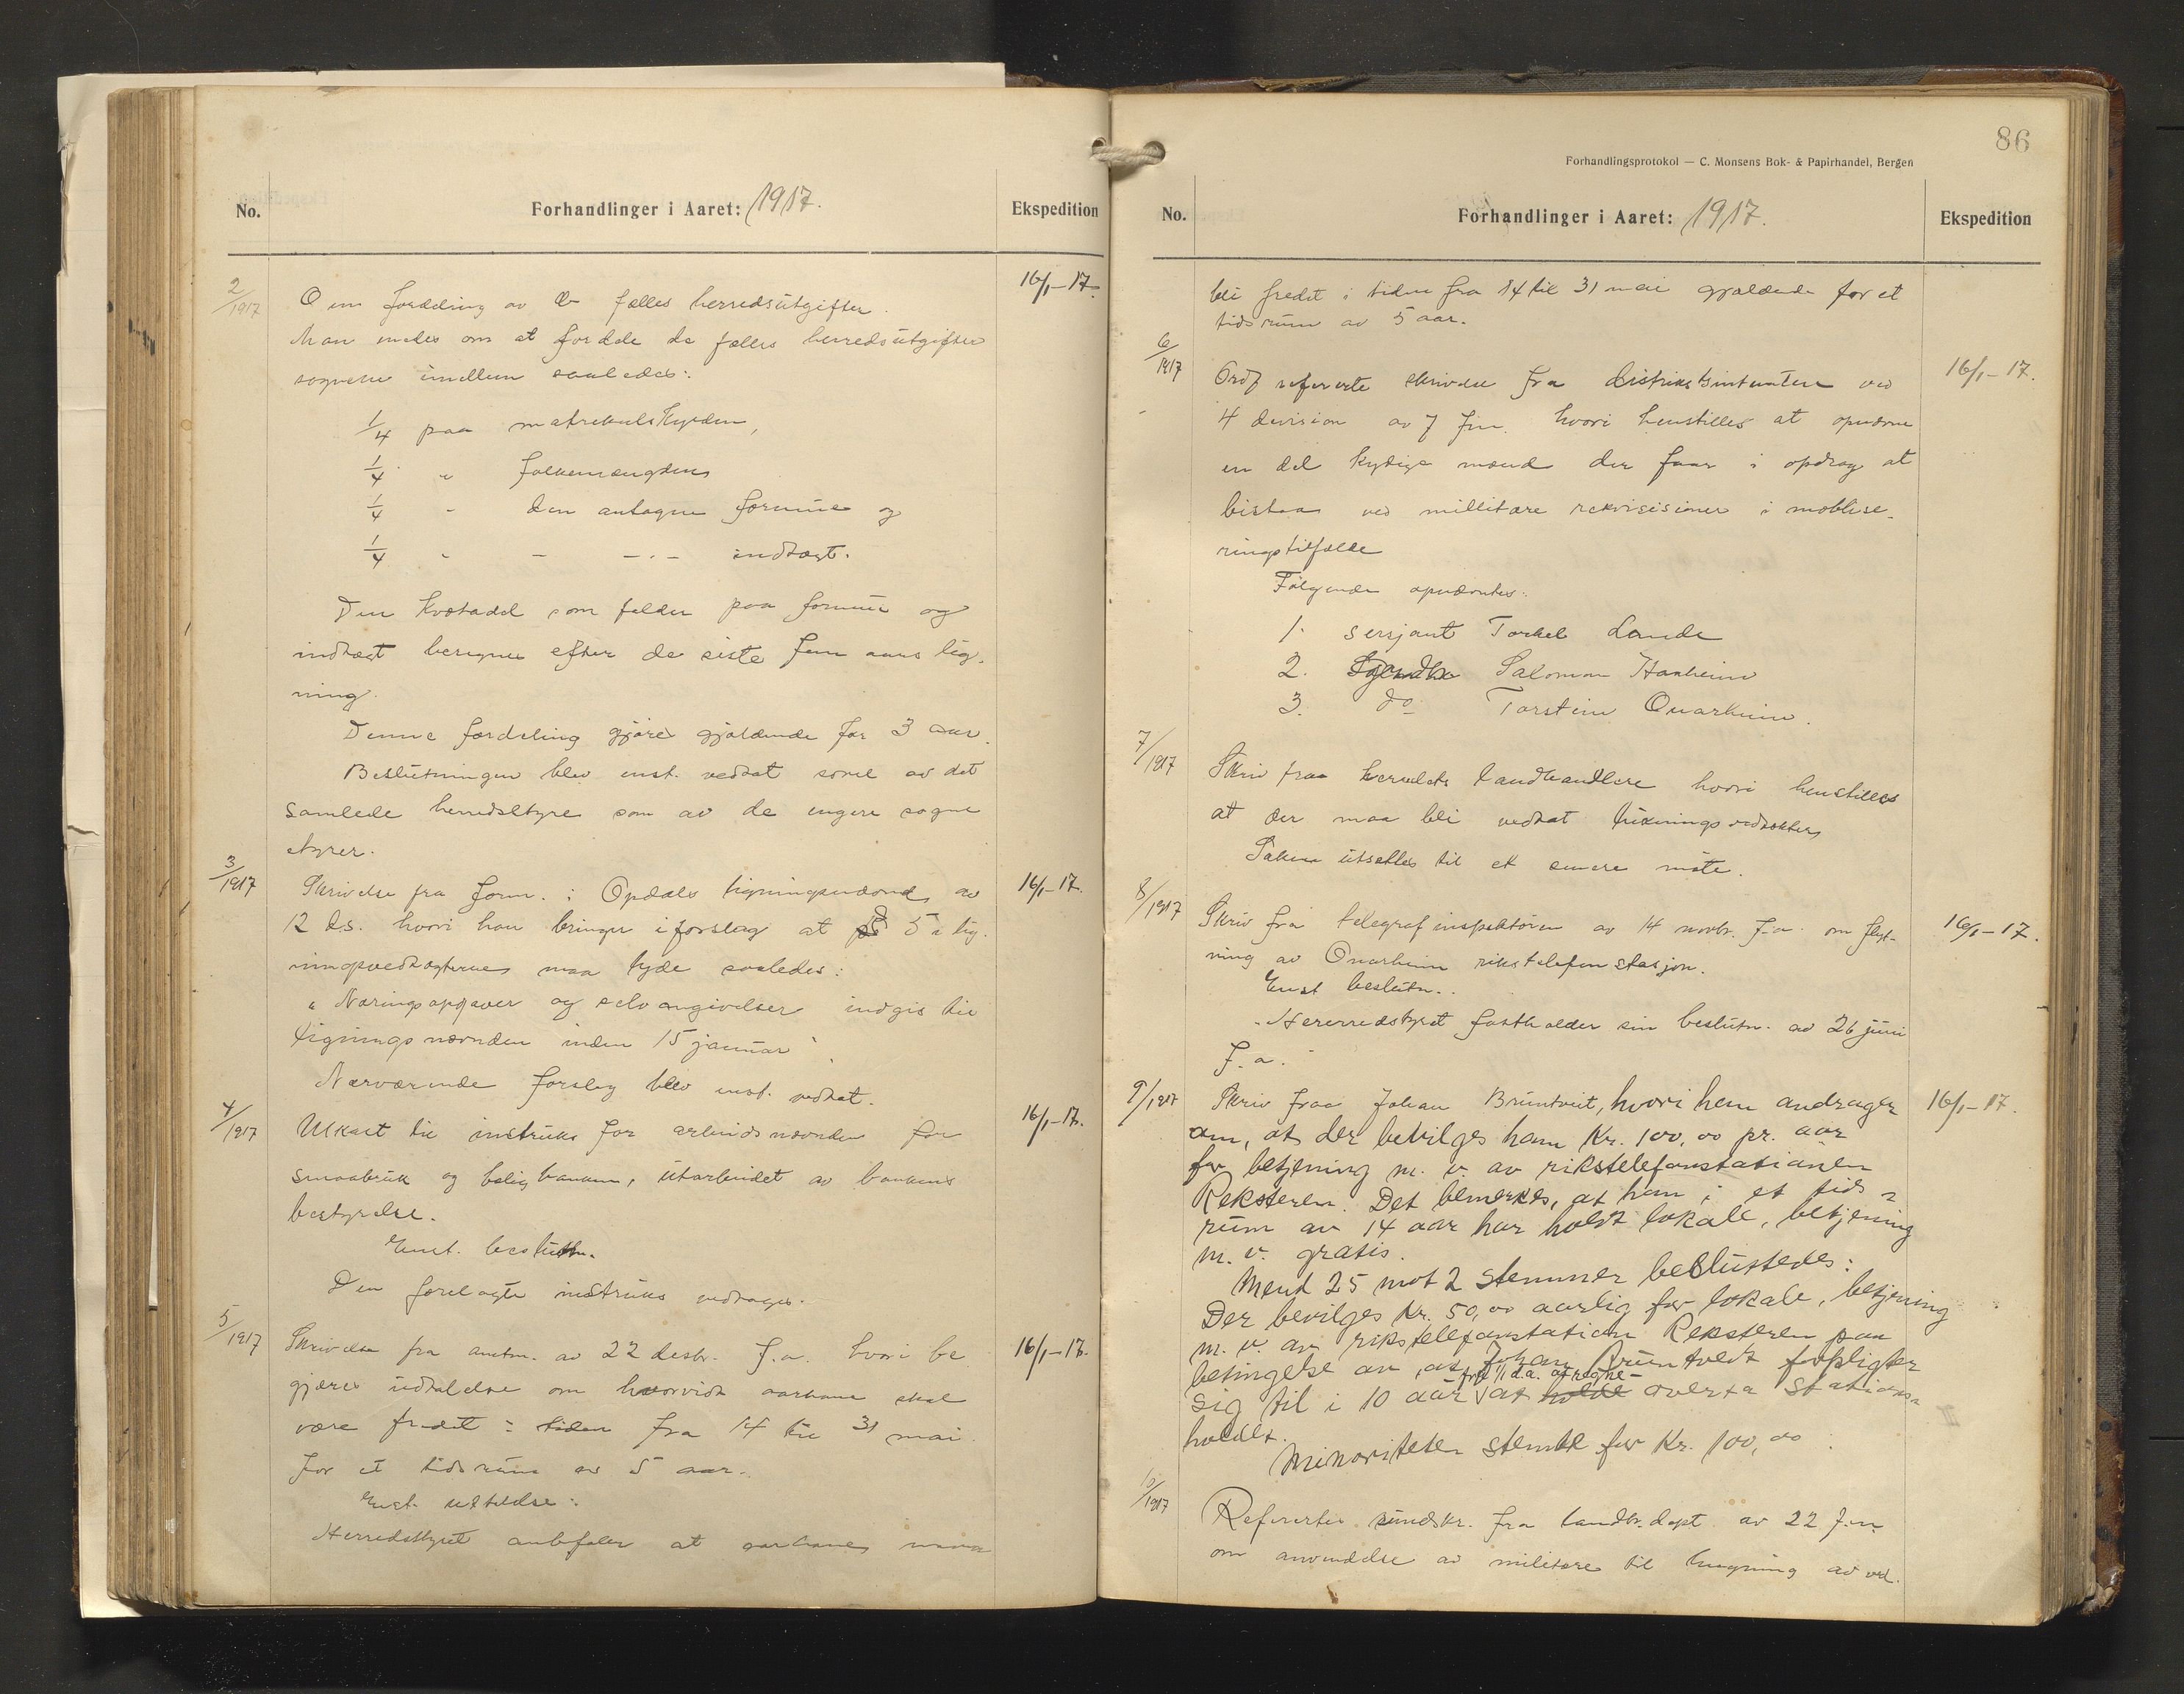 No.
Forhandlinger i Aaret: 1917.
Ekspedition
2/1917
16/1-17.
Om fordeling av de fælles herredsutgifter.
Man enedes om at fordele de fælles herredsutgifter
sognene imellem saaledes:
1/4 paa matrikulskylden,
1/4 " folkemængden
1/4 - den antagne formue og
1/4 - - -.- indtægt.
Den kvotadel som falder paa formue og
indtægt beregnes efter de siste fem aars lig-
ning.
Denne fordeling gjøres gjældende for 3 aar.
Beslutningen blev enst. vedtat sovel av det
samlede herredsstyre som av de engere sogne
styrer.
3/1917
16/1-17.
Skrivelse fra form. i Opdals ligningsnævnd av
12 d.s. hvori han bringer i forslag at § 5 i lig-
ningsvedtægterne maa lyde saaledes:
"Næringsopgaver og selvangivelser indgis til
ligningsnævnden inden 15 januar".
Nærværende forslag blev enst. vedtat.
4/1917
16/1-17.
Utkast til instruks for arbeidsnævnden for
smaabruk og boligbanken, utarbeidet av bankens
bestyrelse.
Enst. beslutn.
Den forelagte instruks vedtages.
5/1917
16/1-17.
Skrivelse fra amtm. av 22 desbr. f.a. hvori be
gjæres uttalelse om hvorvidt aarhane skal
være fredet i tiden fra 14 til 31 mai
for et tidsrum av 5 aar.
Enst. uttalelse:
Herredsstyret anbefaler at aarhanen maa
86
Forhandlingsprotokol — C. Monsens Bok- & Papirhandel, Bergen
No.
Forhandlinger i Aaret: 1917.
Ekspedition
bli fredet i tiden fra 14 til 31 mai gjældende for et
tidsrum av 5 aar.
6/1917
16/1-17.
Ordf refererte skrivelse fra distriktsintendanten ved
4 division av 7 f.m. hvori henstilles at opnævne
en del kyndige mænd der faar i opdrag at
bistaa ved millitære rekvisisioner i moblise-
ringstilfælde
Følgende opnævntes:
1. sersjant Torkel Lande
2. Salomon Haaheim
3. do Torstein Onarheim.
7/1917
Skriv fraa herredets landhandlere hvori henstilles
at der maa bli vedtat lukningsvedtækter
Saken utsettes til et senere møte.
8/1917
16/1-17.
Skriv fra telegrafinspektøren av 14 novbr. f.a. om flyt-
ning av Onarheim rikstelefonstasjon.
Enst beslutn.
"Hererredstyret fastholder sin beslutn. av 26 juni
f.a."
9/1917
16/1-17.
Skriv fraa Johan Bruntveit, hvori han andrager
om, at der bevilges ham Kr. 100,00 pr. aar
for betjening m. v. av rikstelefonstationen
Reksteren. Det bemerkes, at han i et tids-
rum av 14 aar har holdt lokale, betjening
m. v. gratis.
Mend 25 mot 2 stemmer besluttedes:
Der bevilges Kr. 50,00 aarlig for lokale, betjening
m. v. av rikstelefonstation Reksteren paa
betingelse av, at Johan Bruntvedt forpligter
fra 1/1 d.a. at regne-
sig til i 10 aar at holde overta stations-
holdet.
Minoriteten stemte for Kr. 100,00
10/1917
Refererter rundskr. fra landbr.dept av 22 f.m.
om anvendelse av militære til hugning av ved.